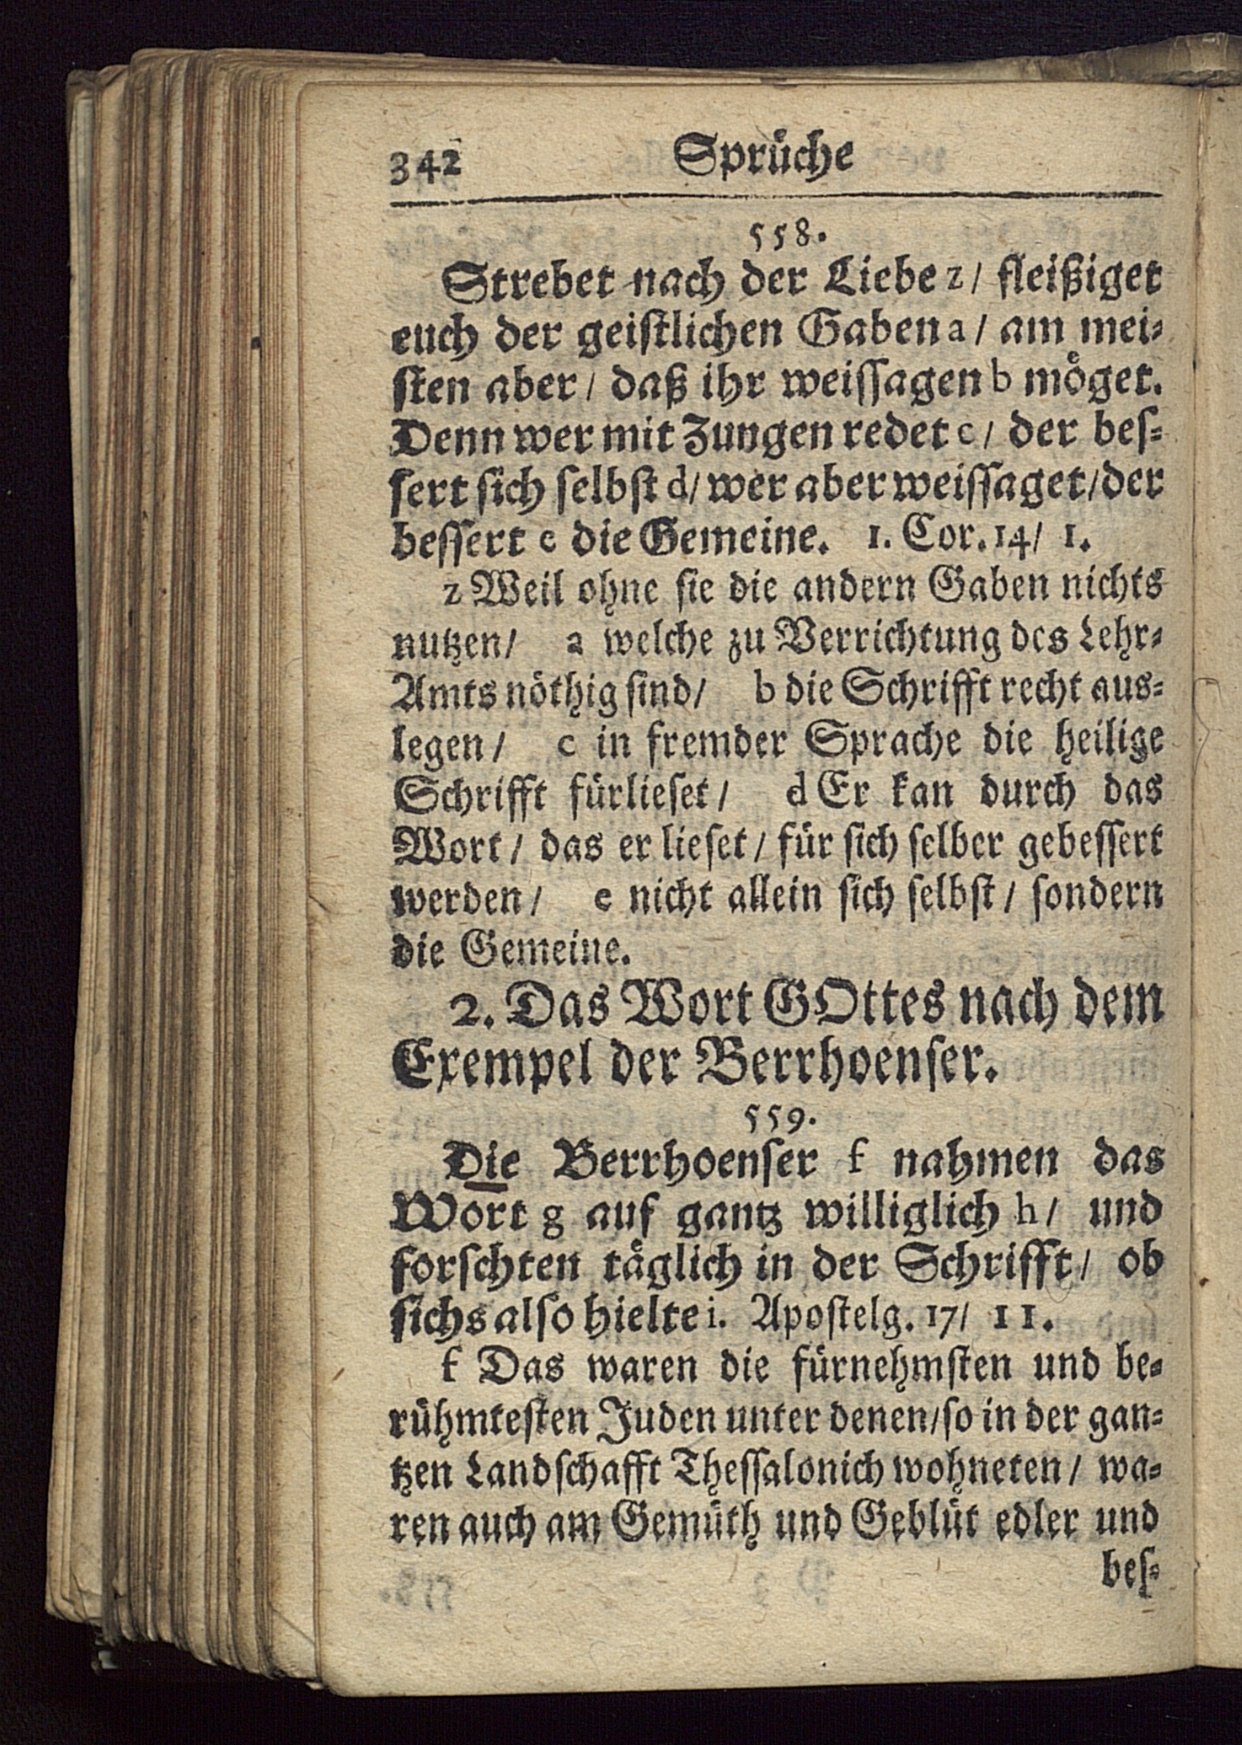 342 Sprüche
558.
Strebet nach der Liebe z/ fleißiget
euch der geistlichen Gaben a/ am mei-
sten aber/ daß ihr weissagen b möget.
Denn wer mit Zungen redet c/ der bes-
sert sich selbst d/ wer aber weissaget/der
bessert e die Gemeine. 1. Cor. 14/ 1.
z Weil ohne sie die andern Gaben nichts
nutzen/ a welche zu Verrichtung des Lehr-
Amts nöthig sind/ b die Schrifft recht aus-
legen/ c in fremder Sprache die heilige
Schrifft fürlieset/ d Er kan durch das
Wort/ das er lieset/ für sich selber gebessert
werden/ e nicht allein sich selbst/ sondern
die Gemeine.
2. Das Wort GOttes nach dem
Exempel der Berrhoenser.
559.
Die Berrhoenser f nahmen das
Wort g auf gantz williglich h/ und
forschten täglich in der Schrifft/ ob
sichs also hielte i. Apostelg. 17/ 11.
f Das waren die fürnehmsten und be-
rühmtesten Juden unter denen/so in der gan-
tzen Landschafft Thessalonich wohneten/ wa-
ren auch am Gemüth und Geblüt edler und
bes-